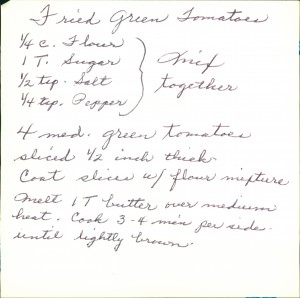 Fried Green Tomatoes
1/4 c. Flour
1 T. Sugar
1/2 tsp. Salt
1/4 tsp. Pepper
Mix
together
4 med. green tomatoes
sliced 1/2 inch thick.
Coat slices w/ flour mixture
Melt 1 T butter over medium
heat. Cook 3-4 min per side.
until lightly brown.